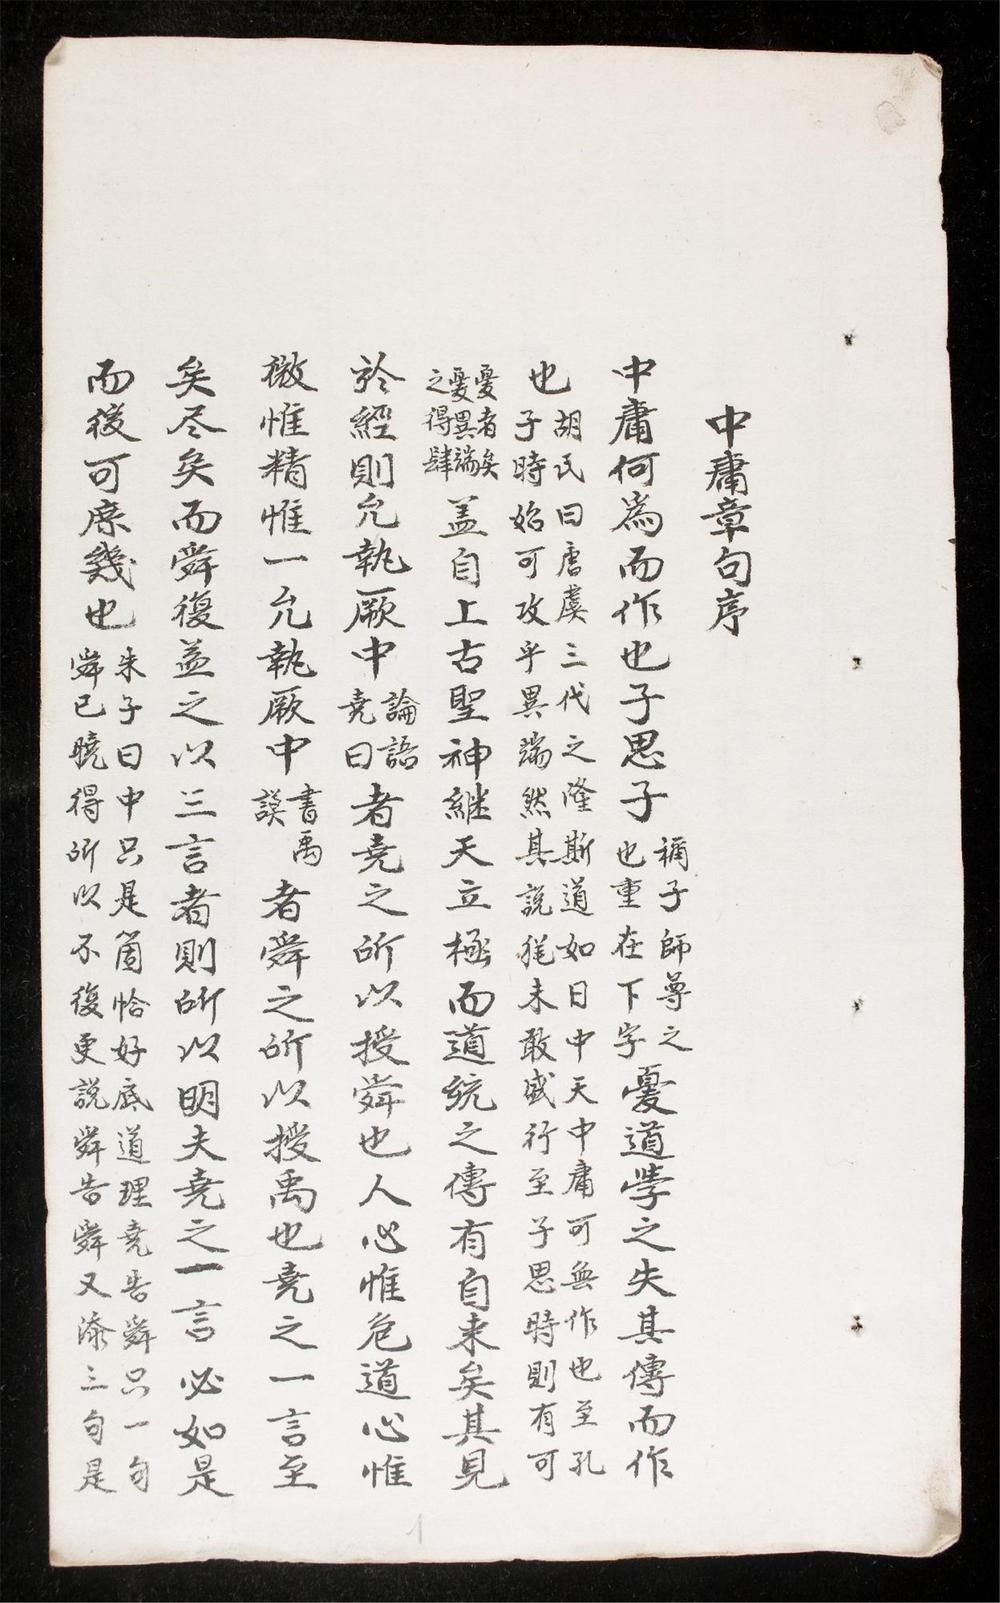 中庸章句序
中庸何為而作也子思子
稱子師尊之
也重在下字
憂道學之失其傳而作
也
胡氏曰唐虞三代之隆斯道如日中天中庸可無作也至孔
子時始可攻乎異端然其說猶未敢盛行至子思時則有可
憂者矣
憂異端
之得肆
盖自上古聖神継天立極而道統之傳有自来矣其見
於經則允執厥中
論語
堯曰
者堯之所以授舜也人心惟危道心惟
微惟精惟一允執厥中
書禹
謨
者舜之所以授禹也堯之一言至
矣尽矣而舜復益之以三言者則所以明夫堯之一言必如是
而後可庶幾也
朱子曰中只是箇恰好底道理堯告舜只一句
舜已曉得所以不復更説舜告舜又添三句是
1